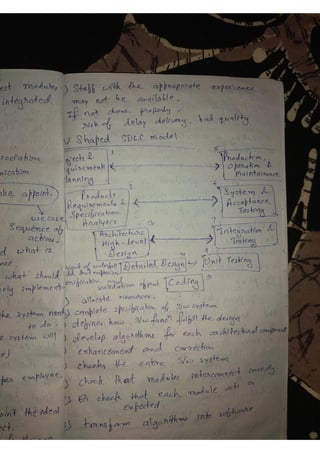 est modules
integrated
sociation
nication
ake appoint.
use case
Sequence of
action.
d what is
what should
ely implement
the system needs
to do.
e system will
per employee
oint the ideal
ect.
) Staff with the appropriate experience
may not be available.
If not done properly,
risk of delay delivery, bad quality
V Shaped SDLC model
1
ojects &
quirements
lanning
2
Product
Requirements &
Specification
Analysis
3
Architecture
High-level
Design
Detailed Design
Coding
Unit Testing
7
Integration &
Testing
6
System &
Acceptance
Testing
5
Production,
operation &
Maintenance
) allocate resources.
) complete specification of s/w system
) defines how s/w func fulfill the design
) develop algorithms for each architectural component
enhancement and correction
) checks the entire s/w system
) check that modules interconnect correctly
) Or check that each module acts as
expected
) transform algorithm into software